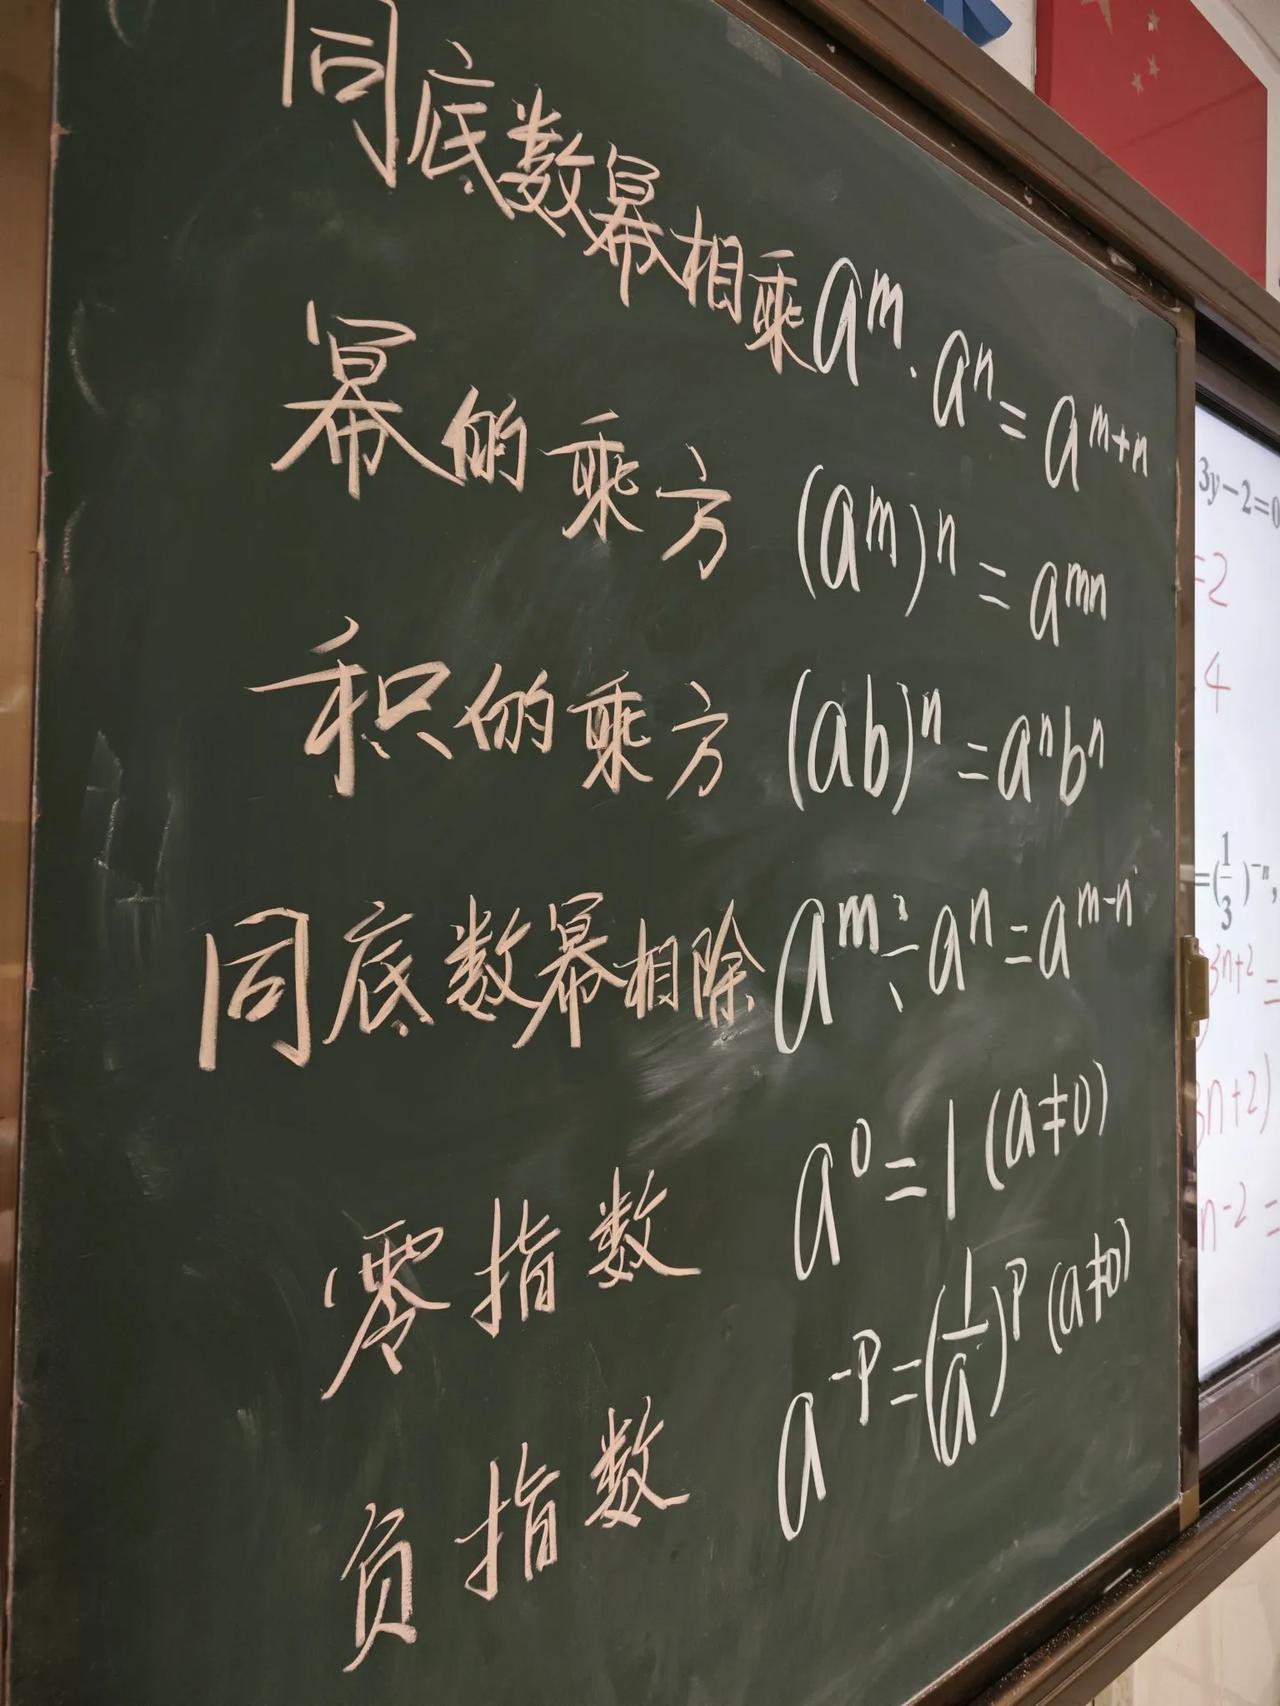 同底数幂相乘 aᵐ·aⁿ=aᵐ⁺ⁿ
幂的乘方 (aᵐ)ⁿ=aᵐⁿ
积的乘方 (ab)ⁿ=aⁿbⁿ
同底数幂相除 aᵐ÷aⁿ=aᵐ⁻ⁿ
零指数 a⁰=1 (a≠0)
负指数 a⁻ᵖ=(1/a)ᵖ (a≠0)
3y-2=0
=2
4
=(1/3)⁻ⁿ,
3n+2 =
3n+2)
n-2 =